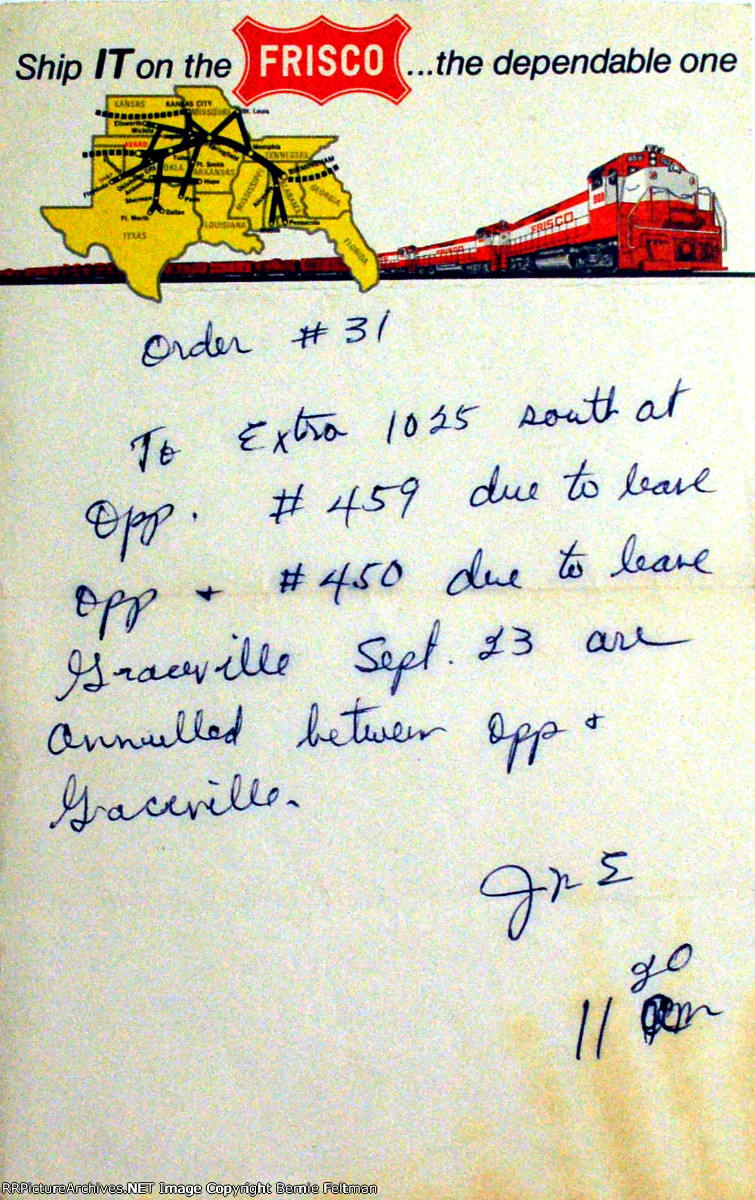 Ship IT on the FRISCO ...the dependable one
KANSAS
KANSAS CITY
MISSOURI
St. Louis
Ellsworth
Wichita
AVARD
Tulsa
Springfield
Memphis
TENNESSEE
BIRMINGHAM
OKLA
Ft. Smith
ARKANSAS
Hope
Sherman
Paris
Ft. Worth
Dallas
TEXAS
LOUISIANA
MISSISSIPPI
ALABAMA
GEORGIA
Pensacola
FLORIDA
FRISCO
FRISCO
Order #31
To Extra 1025 south at
Opp. #459 due to leave
Opp + #450 due to leave
Graceville Sept. 23 are
Annulled between Opp +
Graceville.
20
11
RRPictureArchives.NET Image Copyright Bernie Feltman